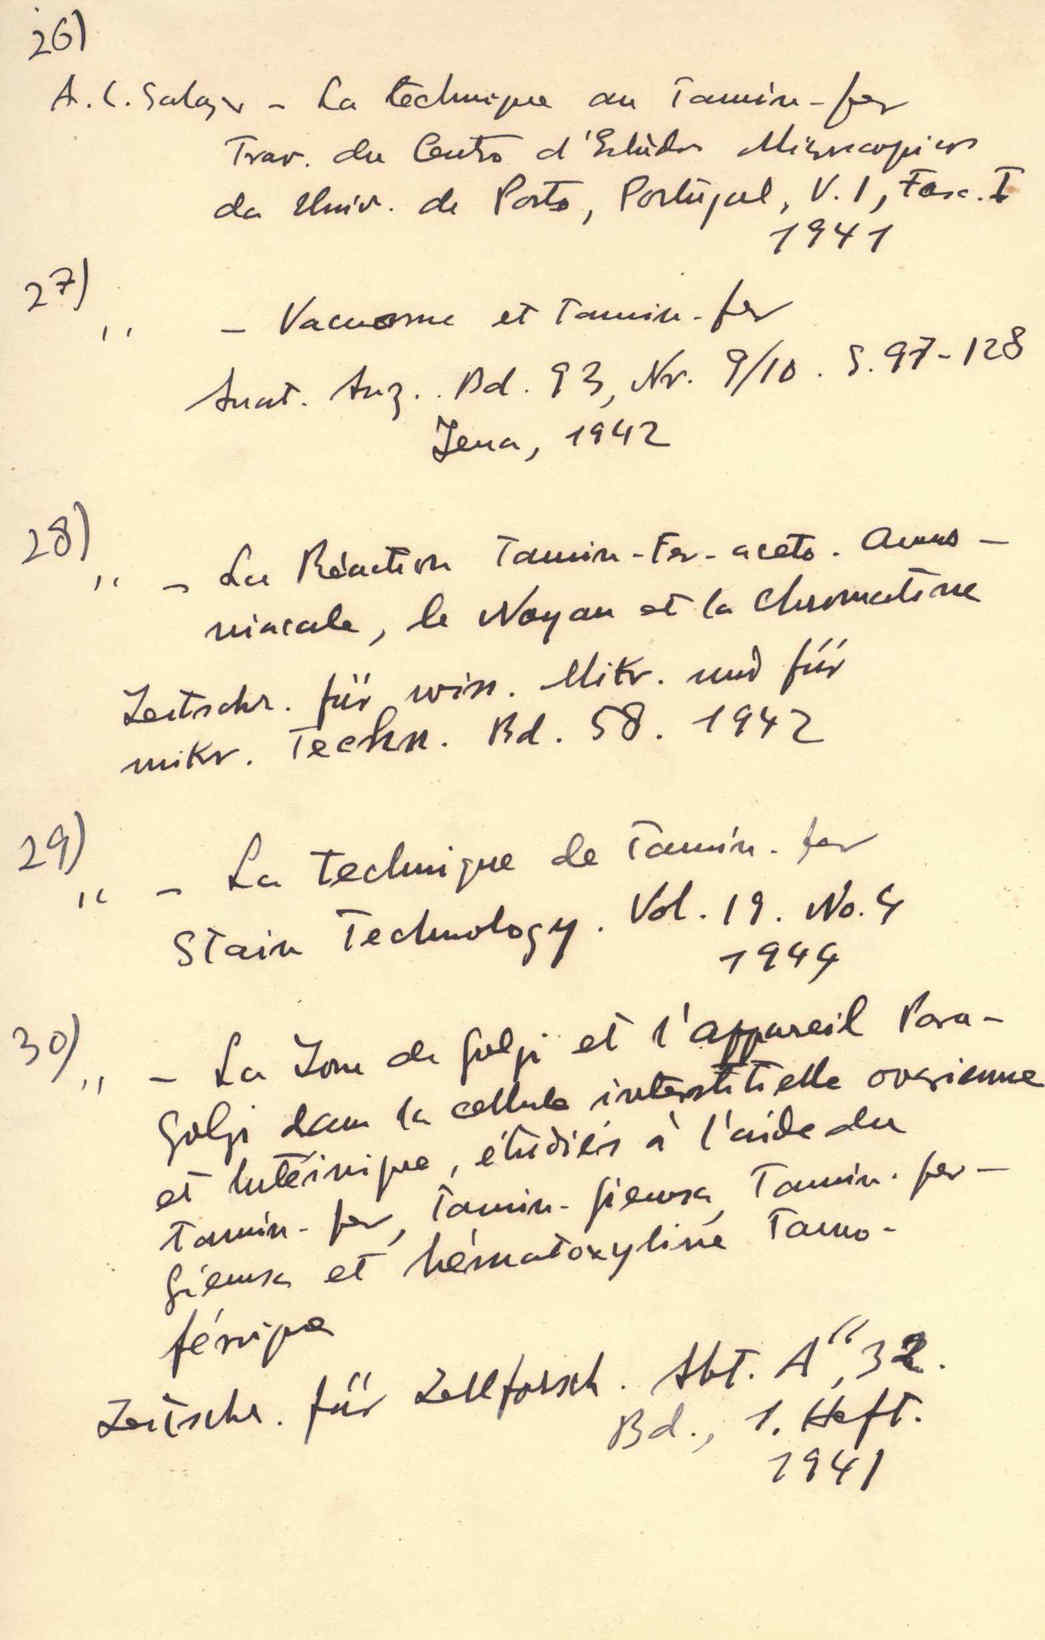 26)
A. L. Salazar - La technique au Tannin-fer
Trav. du Centro d'Estudos Microscopicos
da Univ. de Porto, Portugal, V. 1, Fasc. I
1941
27)
" - Vacuome et Tannin-fer
Anat. Anz.. Bd. 93, Nr. 9/10. S. 97-128
Jena, 1942
28)
" - La Réaction Tannin-Fer-aceto. Ammo-
niacale, le Noyau et la Chromatine
Zeitschr. für wiss. Mikr. und für
mikr. Techn. Bd. 58. 1942
29)
" - La Technique de Tannin-fer
Stain Technology. Vol. 19. No. 4
1944
30)
" - La Zone de Golgi et l'appareil Para-
Golgi dans la cellule interstitielle ovarienne
et lutéinique, étudiés à l'aide du
Tannin-fer, Tannin-Giemsa, Tannin-fer-
Giemsa et hématoxyline Tanno-
férrique
Zeitschr. für Zellforsch. Abt. A", 32.
Bd., 1. Heft.
1941